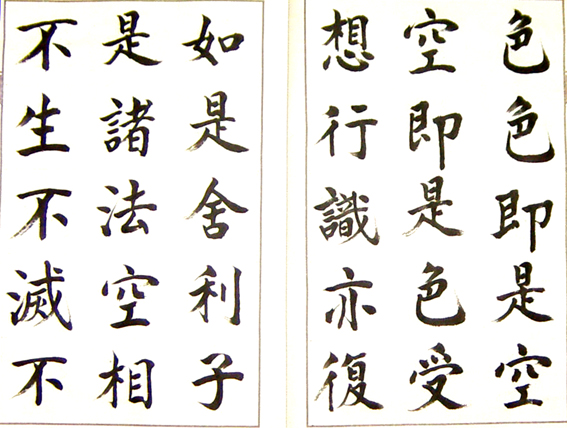 色色即是空
空即是色受
想行識亦復
如是舍利子
是諸法空相
不生不滅不